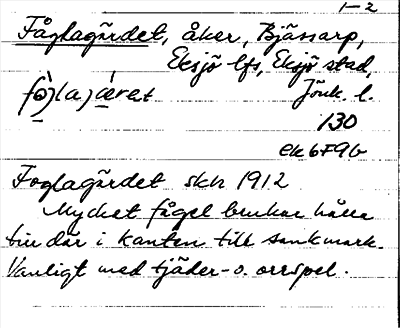 1-2
Fåglagärdet, åker, Bjässarp,
Eksjö lfs, Eksjö stad,
Jönk. l.
130
ek 679b
Foglagärdet skh 1912
Mycket fågel brukar hålla
till där i kanten till sankmark.
Vanligt med tjäder- o. orrspel.